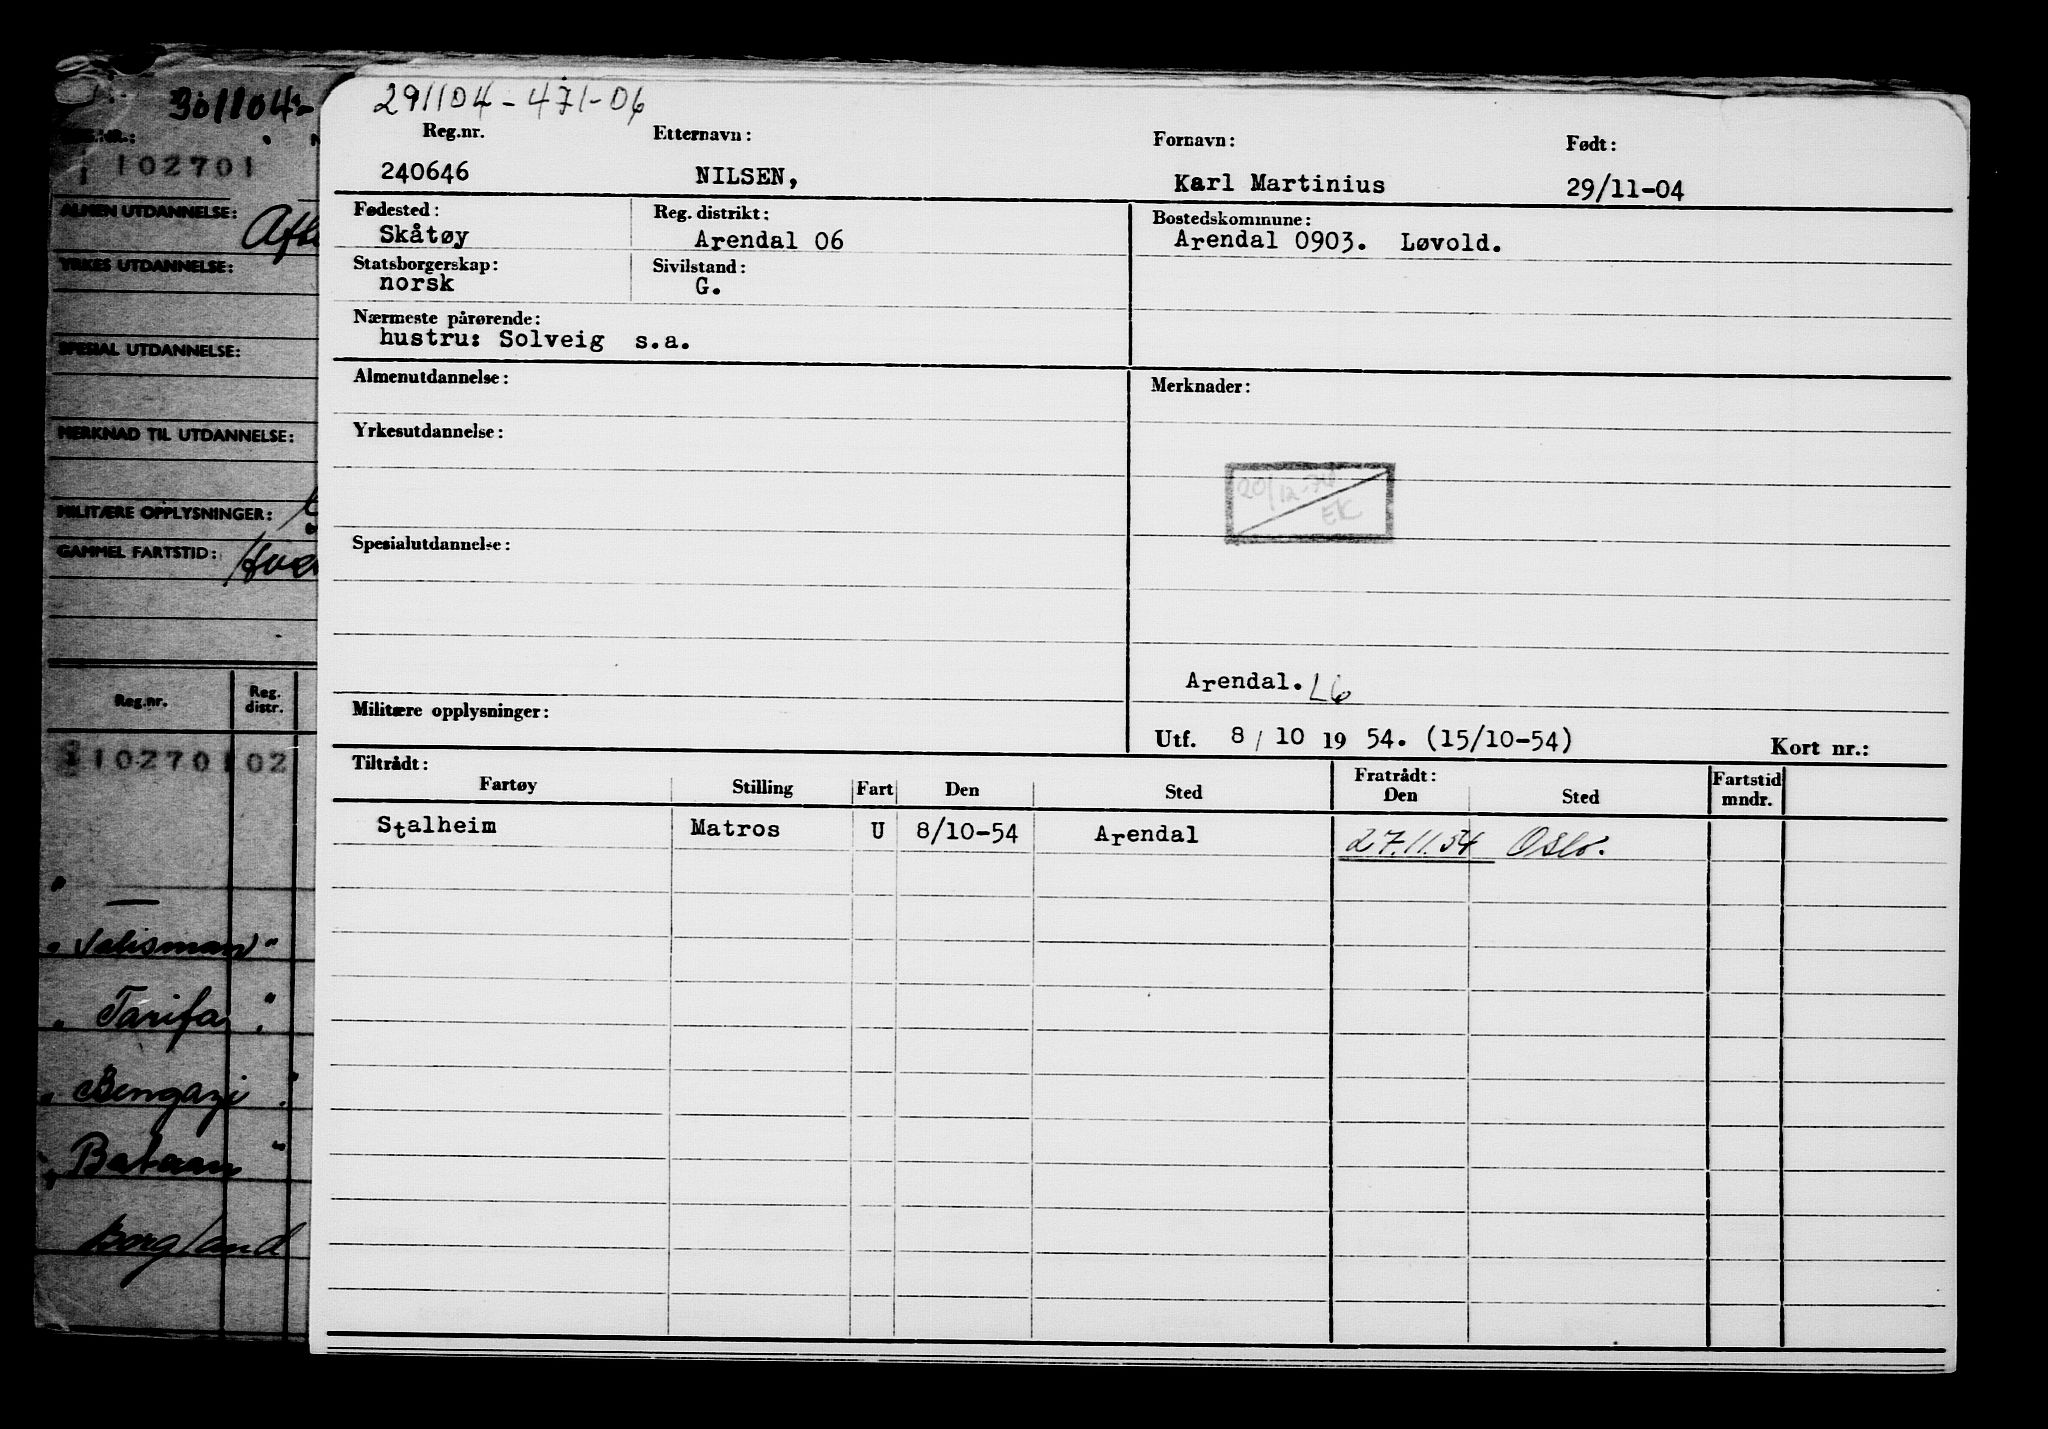 291104-471-06
Reg.nr. Etternavn: Fornavn: Født:
240646 NILSEN, Karl Martinius 29/11-04
Fødested: Reg. distrikt: Bostedskommune:
Skåtøy Arendal 06 Arendal 0903. Løvold.
Statsborgerskap: Sivilstand:
norsk G.
Nærmeste pårørende:
hustru: Solveig s.a.
Almenutdannelse: Merknader:
Yrkesutdannelse:
20/12-74
EK
Spesialutdannelse:
Arendal. L6
Militære opplysninger:
Utf. 8/10 19 54. (15/10-54) Kort nr.:
Tiltrådt: Fratrådt: Fartstid
Fartøy Stilling Fart Den Sted Den Sted mndr.
Stalheim Matros U 8/10-54 Arendal 27.11.54 Oslo.
301104-
102701
ALMEN UTDANNELSE:
YRKES UTDANNELSE:
SPESIAL UTDANNELSE:
MERKNAD TIL UTDANNELSE:
MILITÆRE OPPLYSNINGER:
GAMMEL FARTSTID:
Reg.nr. Reg. distr.
102701 02
" Talisman "
" Tarifa "
" Bengazi "
" Bataan "
Borgland